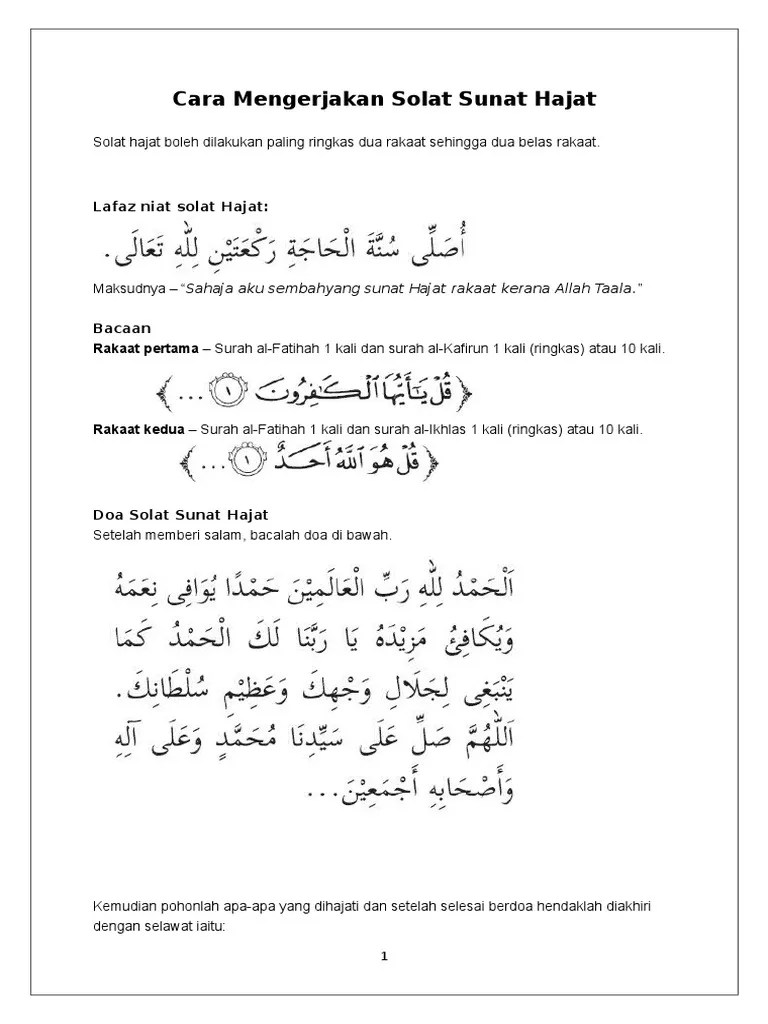 Cara Mengerjakan Solat Sunat Hajat
Solat hajat boleh dilakukan paling ringkas dua rakaat sehingga dua belas rakaat.
Lafaz niat solat Hajat:
أُصَلِّى سُنَّةَ الْحَاجَةِ رَكْعَتَيْنِ لِلّٰهِ تَعَالَى.
Maksudnya – “Sahaja aku sembahyang sunat Hajat rakaat kerana Allah Taala.”
Bacaan
Rakaat pertama – Surah al-Fatihah 1 kali dan surah al-Kafirun 1 kali (ringkas) atau 10 kali.
﴿قُلْ يَـٰٓأَيُّهَا ٱلْكَـٰفِرُونَ ١ ...﴾
Rakaat kedua – Surah al-Fatihah 1 kali dan surah al-Ikhlas 1 kali (ringkas) atau 10 kali.
﴿قُلْ هُوَ ٱللَّهُ أَحَدٌ ١ ...﴾
Doa Solat Sunat Hajat
Setelah memberi salam, bacalah doa di bawah.
اَلْحَمْدُ لِلّٰهِ رَبِّ الْعَالَمِيْنَ حَمْدًا يُوَافِى نِعَمَهُ
وَيُكَافِئُ مَزِيْدَهُ يَا رَبَّنَا لَكَ الْحَمْدُ كَمَا
يَنْبَغِى لِجَلَالِ وَجْهِكَ وَعَظِيْمِ سُلْطَانِكَ.
اَللّٰهُمَّ صَلِّ عَلَى سَيِّدِنَا مُحَمَّدٍ وَعَلَى آلِهِ
وَأَصْحَابِهِ أَجْمَعِيْنَ...
Kemudian pohonlah apa-apa yang dihajati dan setelah selesai berdoa hendaklah diakhiri
dengan selawat iaitu:
1